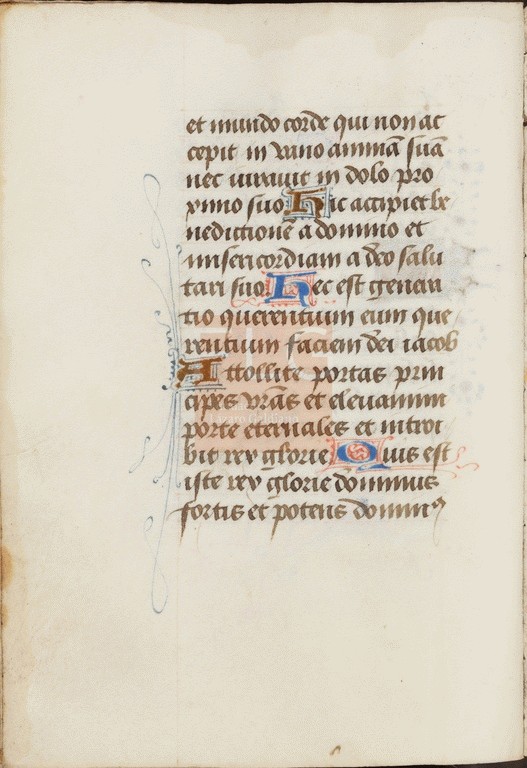 et mundo corde qui non ac
cepit in vano animā suā
nec iuravit in dolo pro
ximo suo Hic accipiet be
nedictionē a domino et
misericordiam a deo salu
tari suo Hec est genera
tio querentium eum que
rentium faciem dei iacob
Attollite portas prin
cipes vr̄as et elevamini
porte eternales et introi
bit rex glorie Quis est
iste rex glorie dominus
fortis et potens domin⁹
Lázaro Galdiano